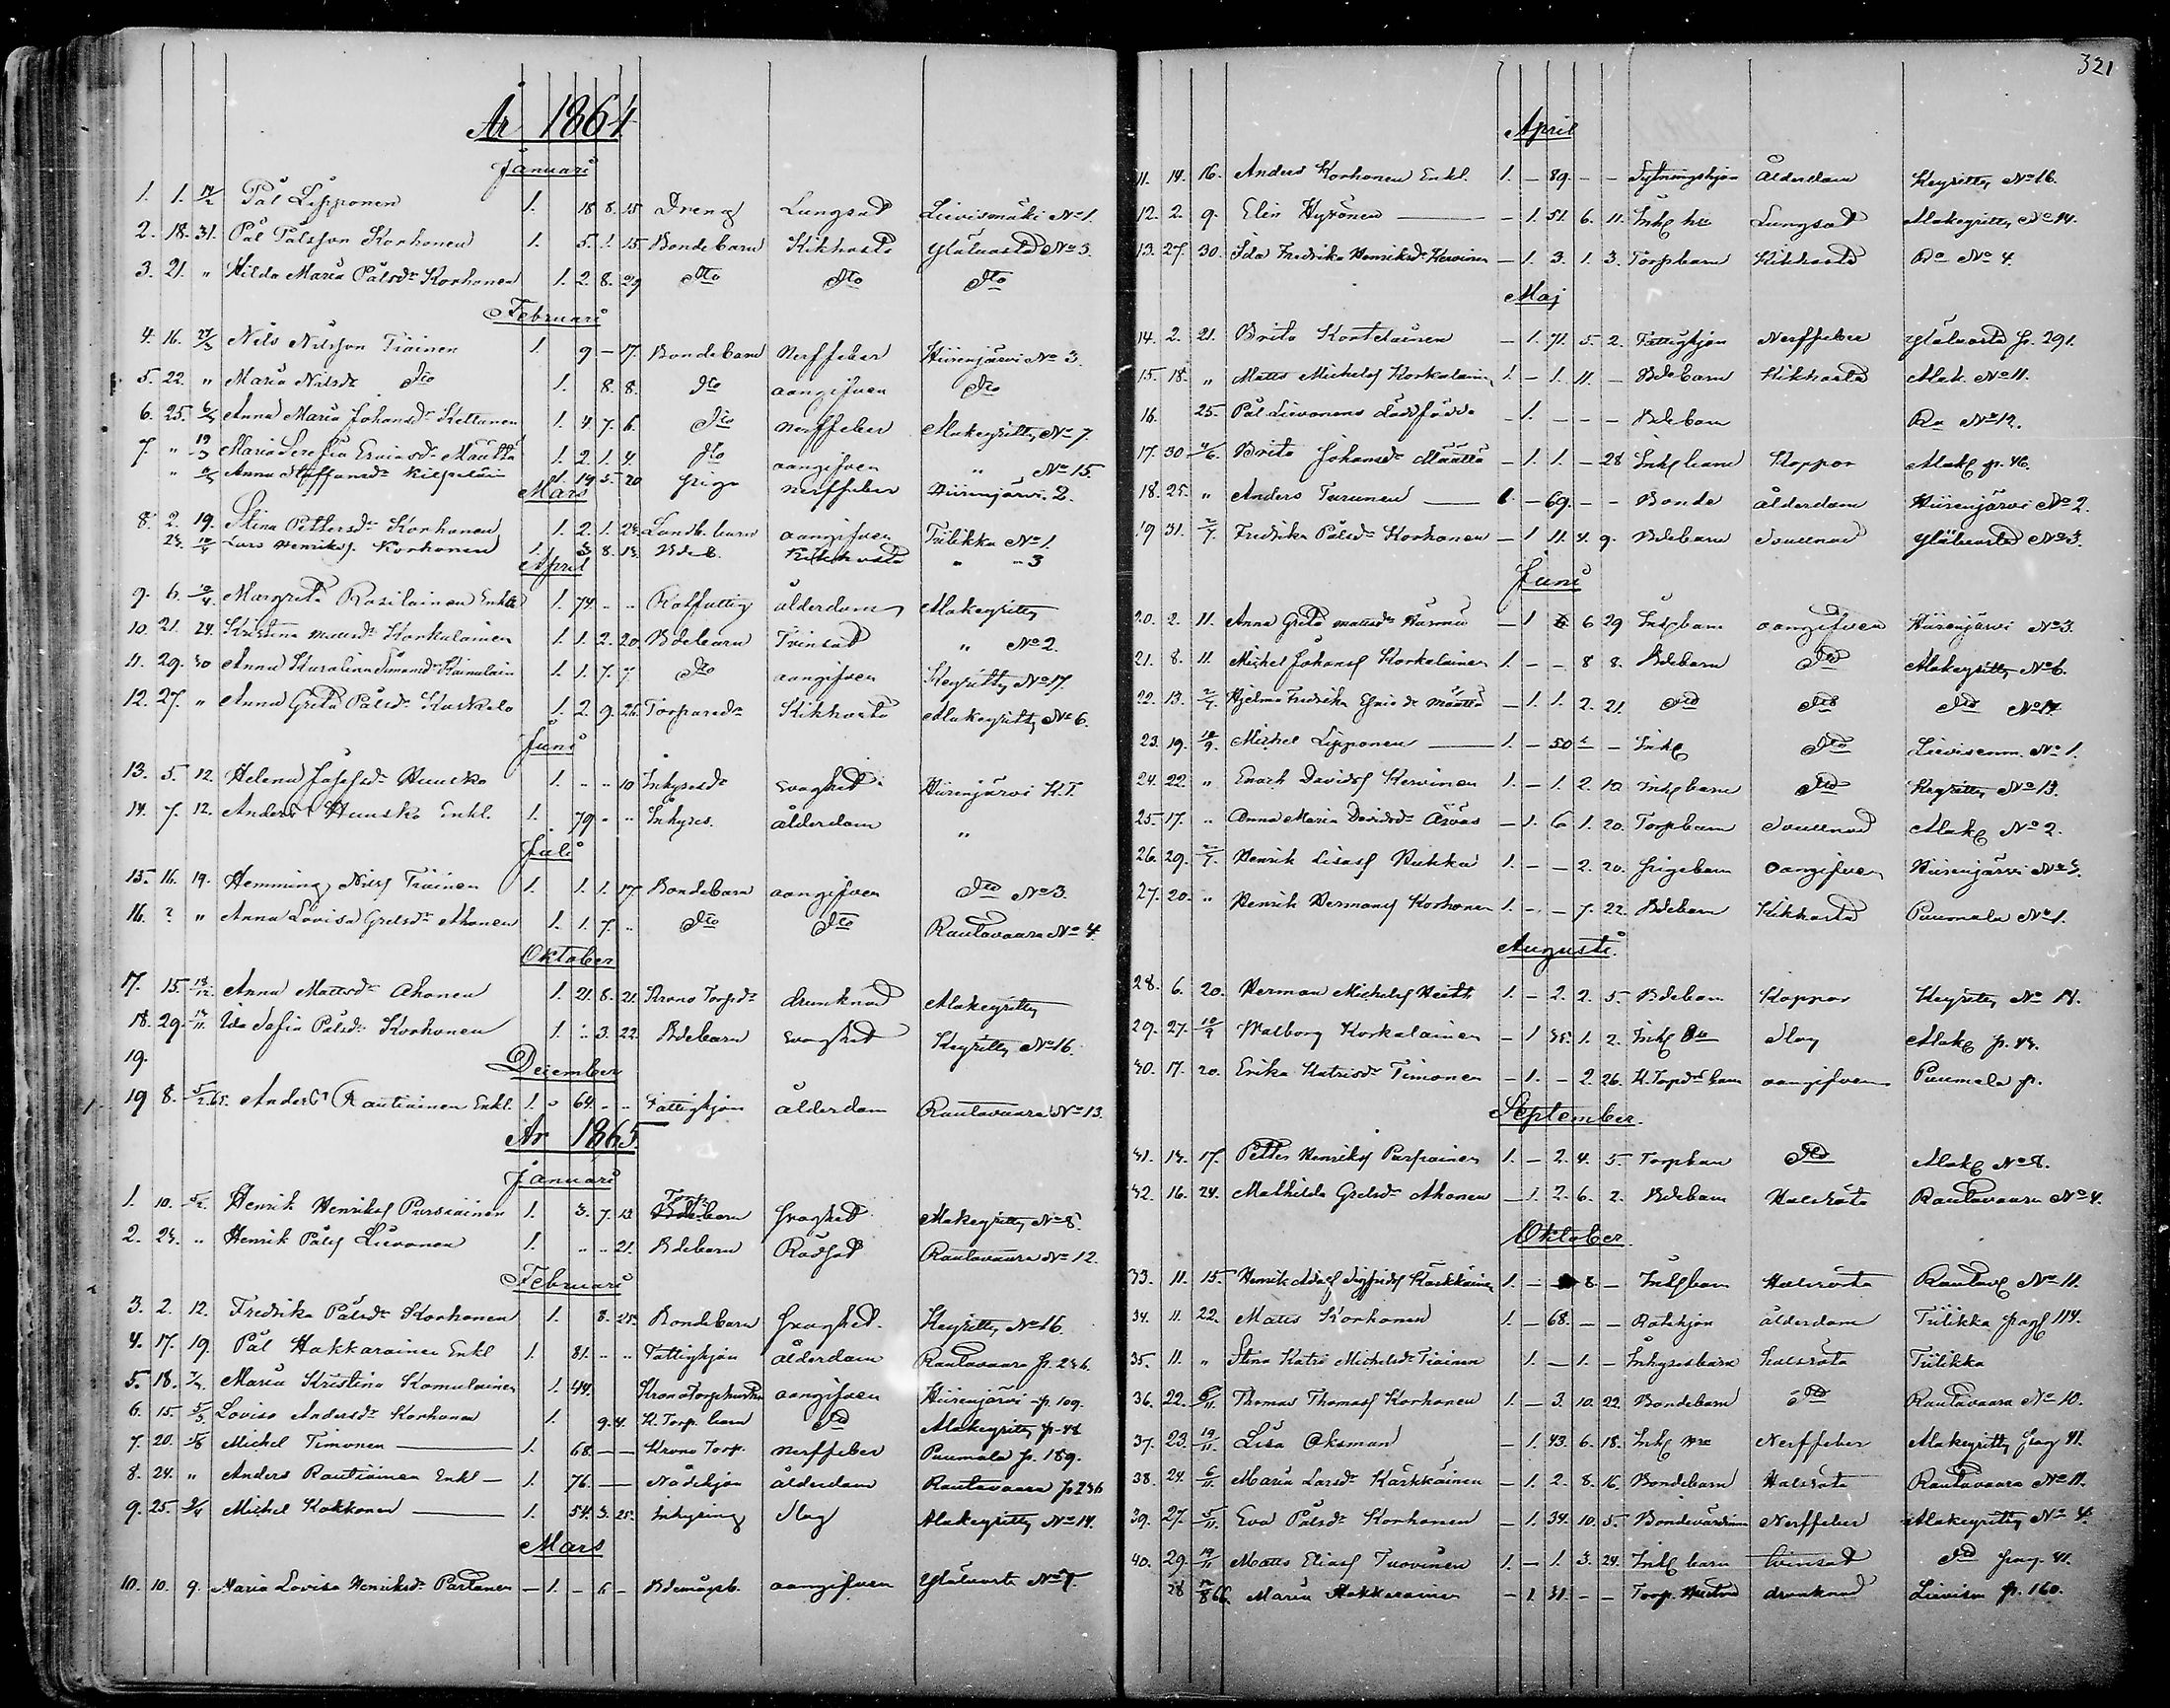 År 1864
Januari
1. 1. 14/2 Pål Lipponen 1. 18 8. 15 Dreng Lungsot Liivismäki No 1.
2. 18. 31. Pål Pålsson Korhonen 1. 5. 1. 15. Bondebarn Kikhosta Yläluosta No 3.
3. 21. " Hilda Maria Pålsdr Korhonen 1. 2. 8. 29 Dto Dto Dto
Februari
4. 16. 27/3 Nils Nilsson Tiainen 1. 9 – 17. Bondebarn Nerffeber Hiirenjärvi No 3.
5. 22. " Maria Nilsdr Dto 1. 8. 8. Dto oangifven Dto
6. 25. 6/3 Anna Maria Johansdr Kettunen 1. 4. 7. 6. Dto Nerffeber Alakeyritty No 7.
7. " 13/3 Maria Serefia Ericsdr Määttä 1. 2. 1. 4 Dto oangifven " No 15.
" Anna Staffansdr Kilpeläin 1. 19 5. 20 piga Nerffeber Hiirenjärvi 2.
Mars
8. 2. 19. Stina Pettersdr Korhonen 1. 2. 1. 24. Landb. barn oangifven Tiilikka No 1.
24. 10/4 Lars Henrikss. Korhonen 1. 3 8. 14. Bdeb. Kikhosta " " 3
April
9. 6. 10/4. Margreta Rosilainen Enka 1. 74. – .. Rotfattig ålderdom Alakeyritty
10. 21. 24. Kristina Mattsdr Korkalainen 1. 1. 2. 20 Bdebarn Tvinsot " No 2.
11. 29. 30 Anna Karolina Simonsdr Kainulain 1. 1. 7. 7. Dto oangifven Keyritty No 17.
12. 27. " Anna Greta Pålsdr Kaskelo 1. 2. 9. 26. Torparedr Kikhosta Alakeyritty No 6.
Juni
13. 5. 12. Helena Josefsdr Huusko 1. .. .. 10 Inhysesdr svaghet Hiirenjärvi K.T.
14. 7. 12. Anders Huusko Enkl. 1. 79 – .. Inhyses. ålderdom "
Juli
15. 16. 19. Hemming Nilss Tiainen 1. 1. 1. 17. Bondebarn oangifven Dto No 3.
16. ? " Anna Lovisa Gretsdr Ahonen 1. 1. 7. .. Dto Dto Rautavaara No 4.
Oktober
17. 15. 18/12. Anna Mattsdr Ahonen 1. 21. 8. 21. Krono Torpdr drunknad Alakeyritty
18. 29. 14/11. Ida Sofia Pålsdr Korhonen 1. .. 3. 22. Bdebarn svaghet Keyritty No 16.
19.
December
19 8. 5/2 65. Anders Rautiainen Enkl. 1. 64. – .. Fattighjon ålderdom Rautavaara No 13.
År 1865
Januari
1. 10. 5/2. Henrik Henrikss Purssiainen 1. 3. 7. 13 Torp. Bdebarn svaghet Alakeyritty No 8.
2. 24. " Henrik Pålss Lievonen 1. .. .. 21. Bdebarn Rödsot Rautavaara No 12.
Februari
3. 2. 12. Fredrika Pålsdr Korhonen 1. 8. 25. Bondebarn svaghet Keyritty No 16.
4. 17. 19. Pål Hakkarainen Enkl 1. 81. .. .. Fattighjon ålderdom Rautavaara p. 236.
5. 18. Maria Kristina Komulainen 1. 44. Krono Torphustru oangifven Hiirenjärvi p. 109.
6. 15. 5/3. Lovisa Andersdr Korhonen 1. 9. 4. K. Torp. barn Dto Alakeyritty p. 48
7. 20. Michel Timonen 1. 68. — — Krono Torp. Nerffeber Puumala p. 189.
8. 24. " Anders Rautiainen Enkl – 1. 76. — Nödehjon ålderdom Rautavaara p 236
9. 25. Michel Kokkonen 1. 54. 3. 25. Inhysing Slag Alakeyritty No 14.
Mars
10. 10. 9. Maria Lovisa Henriksdr Partanen – 1. – 6 – oangifven Ylaluosta No 7.
321
April
11. 14. 16. Anders Korhonen Enkl. 1. – 89. – – Sytningshjon Ålderdom Keyritty No 16.
12. 2. 9. Elin Hyvönen – 1. 51. 6. 11. Inh hu Lungsot Alakeyritty No 14.
13. 27. 30. Ida Fredrika Henriksdr Kervinen – 1. 3. 1. 3. Torpbarn Kikhosta Do No 4.
Maj
14. 2. 21. Brita Kortelainen – 1. 71. 5. 2. Fattighjon Nerffeber Ylaluosta p. 291.
15. 18. " Matts Michelss Korkalain 1. – 1. 11. – Bdebarn Kikhosta Alak. No 11.
16. 25. Pål Lievonens dödfödda – 1. – – – Bdebarn Ra No 12.
17. 30 4/6. Brita Johansdr Määttä – 1. 1. – 28 Inh barn Koppor Alak p. 46.
18. 25. " Anders Turunen 1. – 69. – – Bonde ålderdom Hiirenjärvi No 2.
19 31. 2/7. Fredrika Pålsdr Korhonen – 1 11. 4. 9. Bdebarn Ylaluosta No 3.
Juni
20. 2. 11. Anna Greta Mattsdr – 1 6 29 Inh barn oangifven Hiirenjärvi No 3.
21. 8. 11. Michel Johanss Korkalainen 1. – – 8 8. Bdebarn Dto Alakeyritty No 6.
22. 13. 2/7 Hjelma Fredrika Määttä – 1. 1. 2. 21. Dto Dto Dto No 14.
23. 19. 10/9. Michel Lipponen 1. – 50 – – Inh Dto Lievisenm. No 1.
24. 22. " Enoch Davidss Kervinen 1. – 1. 2. 10. Inh barn Dto Keyritty No 13.
25. 17. " Anna Maria Davidsdr Asvas – 1. 6 1. 20. Torpbarn Alak No 2.
26. 29. 2/7. Henrik Lisass Hukka 1. – – 2. 20. pigebarn oangifven Hiirenjärvi No 3.
27. 20. " Henrik Hermanss Korhonen 1. – – 7. 22. Bdebarn Kikhosta Puumala No 1.
Augusti.
28. 6. 20. Herman Michelss 1. – 2. 2. 5. Bdebarn Koppor Keyritty No 18.
29. 27. 10/9 Walborg Korkalainen – 1 35. 1. 2. Inh Slag Alak p. 43.
30. 17. 20. Erika Katrisdr Timonen – 1. – 2. 26. K. Torpdrs barn oangifven Puumala p.
September.
31. 14. 17. Petter Henrikss Parpainen 1. – 2. 4. 5. Torpbarn Dto Alak No 8.
32. 16. 24. Mathilda Gretsdr Ahonen – 1. 2. 6. 2. Bdebarn Halsröta Rautavaara No 4.
Oktober.
33. 11. 15. Henrik Adolf Sigfridss Kärkkäinen 1. – 8. – Inh barn Halsröta Rautav No 11.
34. 11. 22. Matts Korhonen 1. – 68. – – Rotehjon ålderdom Tiilikka pag 114.
35. 11. " Stina Katri Michelsdr Tiainen 1. – 1. – Inhysesbarn halsröta Tiilikka
36. 22. Thomas Thomass Korhonen 1. – 3. 10. 22. Bondebarn Dto Rautavaara No 10.
37. 23. 19/11. Lisa Oksman – 1. 43. 6. 18. Inh Nerffeber Alakeyritty pag 41.
38. 24. 6/11. Maria Larsdr Kärkkäinen – 1. 2. 8. 16. Bondebarn Halsröta Rautavaara No 11.
39. 27. 5/11. Eva Pålsdr Korhonen – 1. 34. 10. 5. Bondevärdinna Nerffeber Alakeyritty No 4.
40. 29. 19/11 Matts Eliass Tuovinen 1. – 1. 3. 24. Inh barn tvinsot Dto pag. 41.
28 66. Maria Hakkarainen – 1. 31. – – Torp. Hustru drunknad Lievisen p. 160.